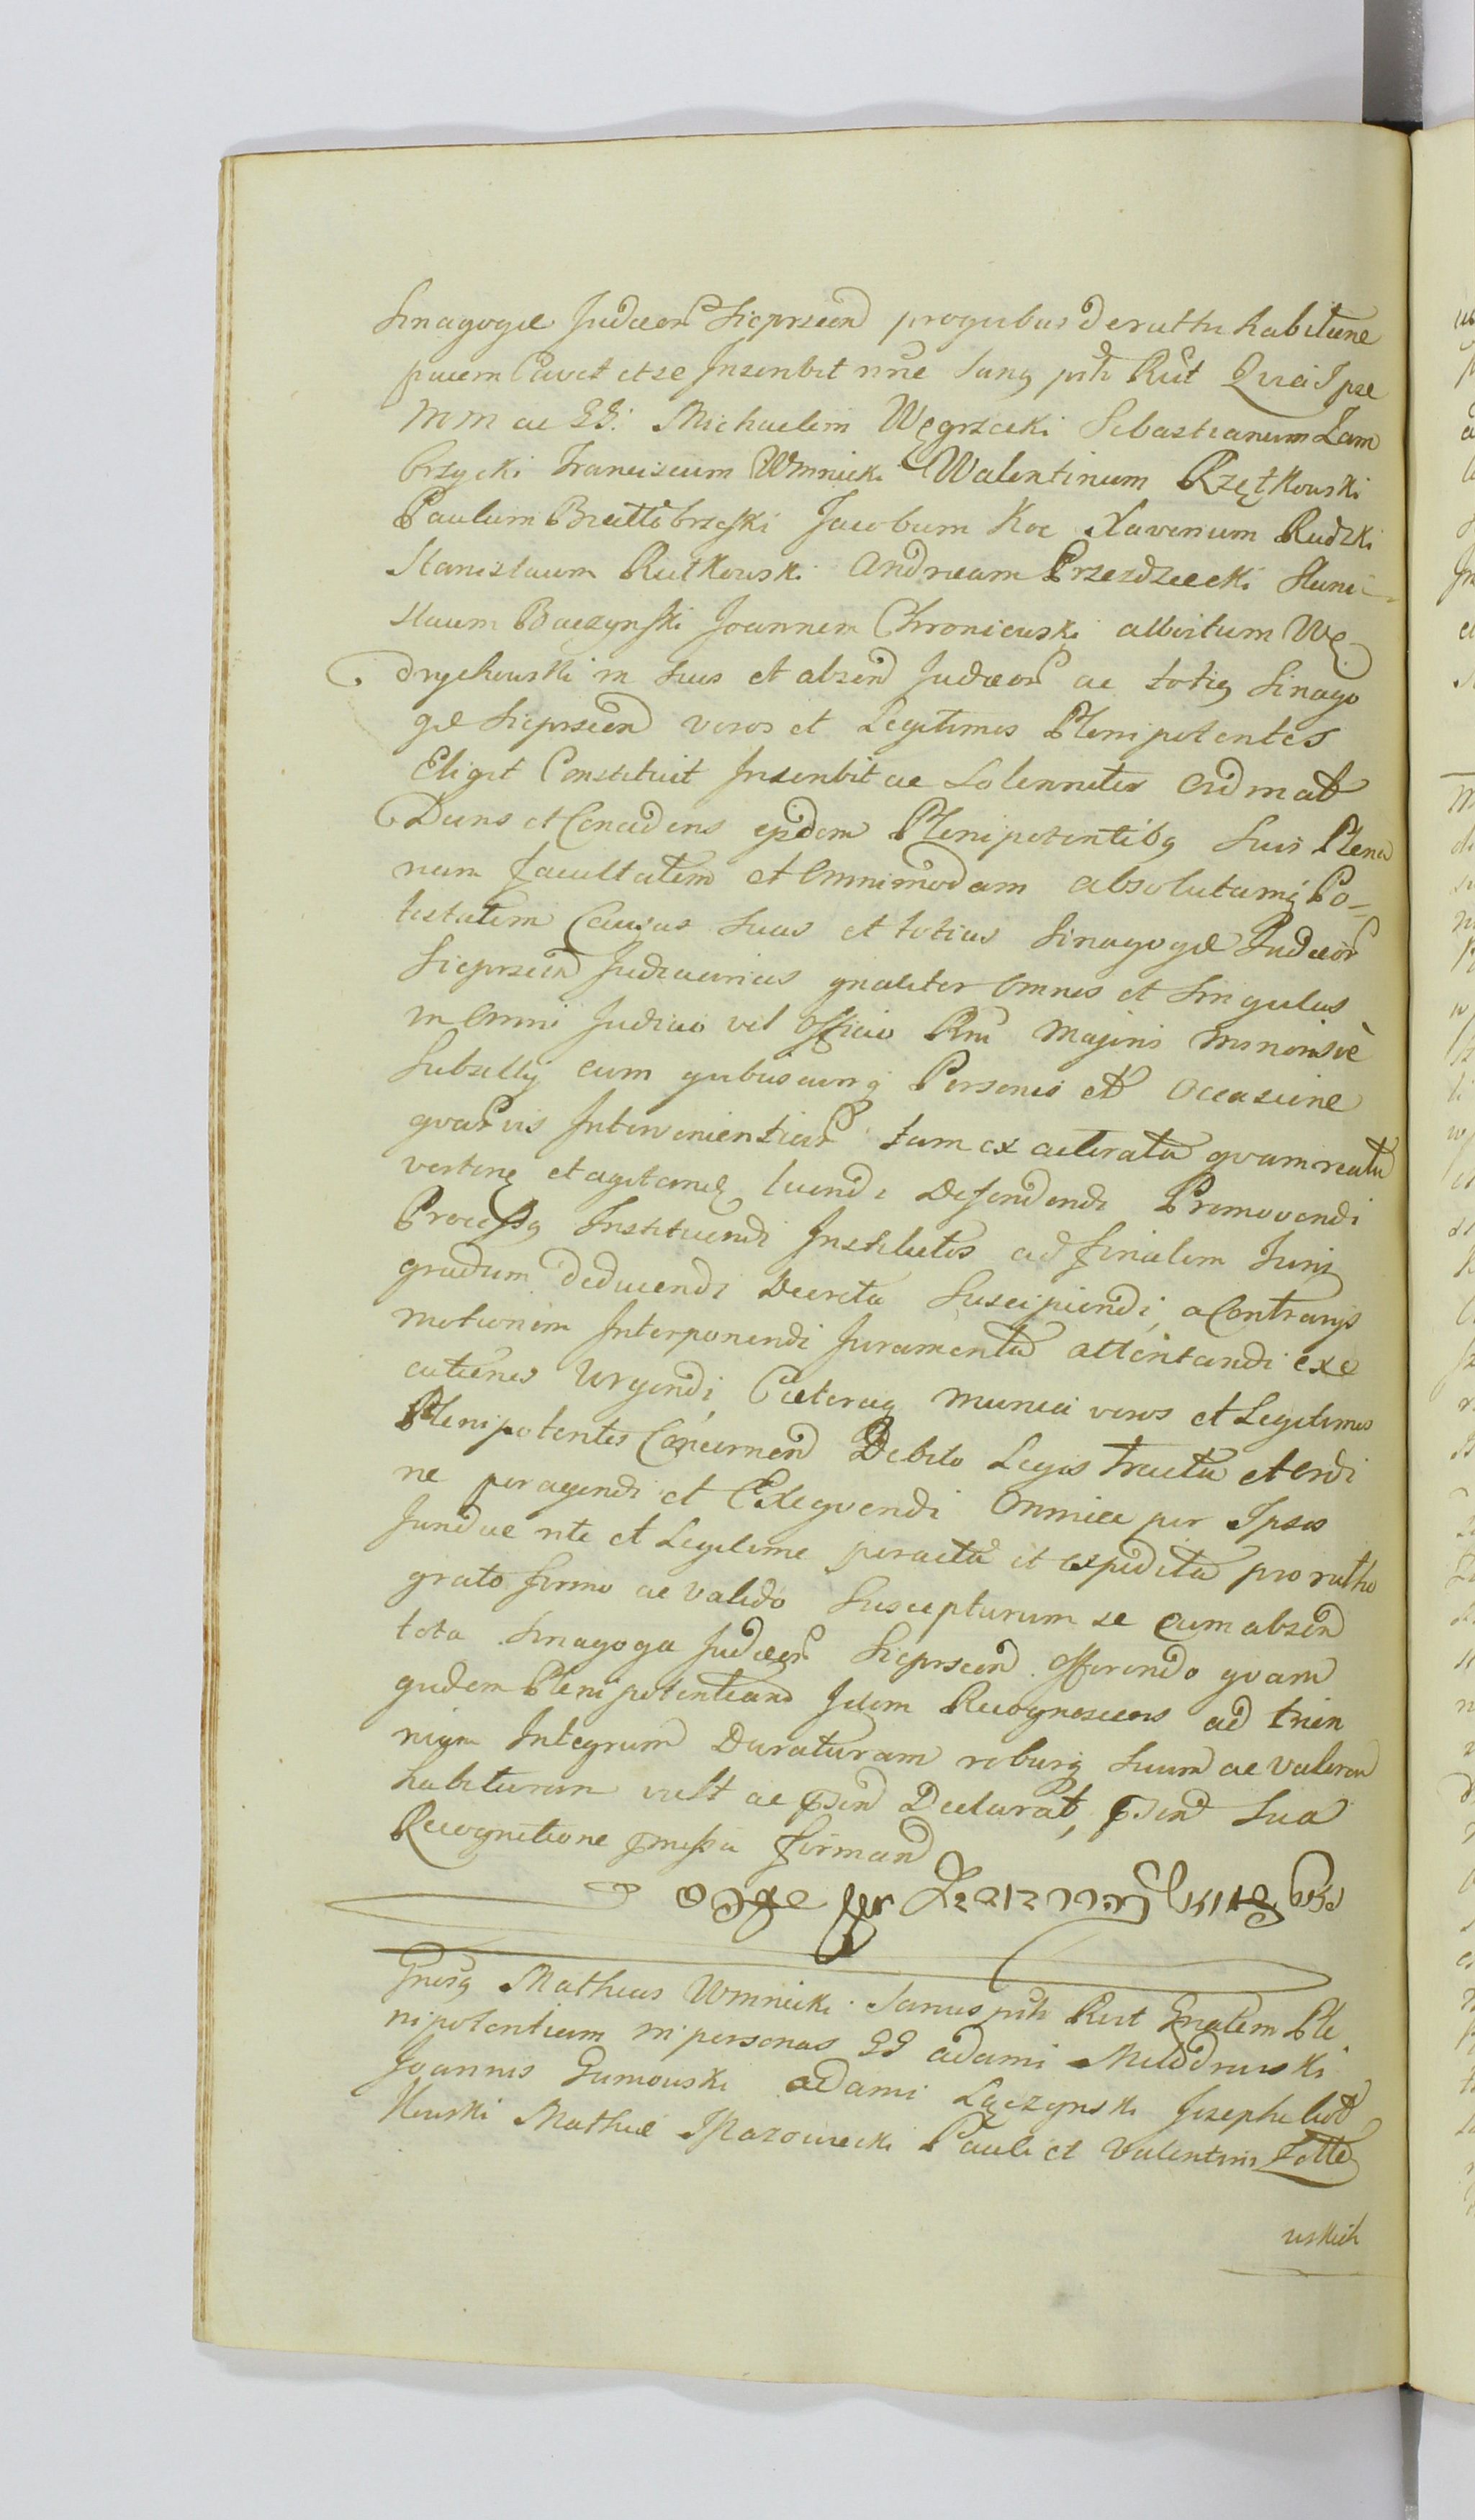 Sinagogæ Judæor Sieprscen progvibus de rathi habitione
pacem Cavet et se Inscribit mne Sang pñtr Rcit Qvia Ipse
MM ac GG: Michaelem Węgrzecki Sebastianum Zam
brzycki Franciscum Wmnicki Walentinum Rzętkowski
Paulum Brattobrzeski Jacobum Koc Xaverium Rudzki
Stanislaum Rutkowski Andream Przezdziecki Stani-
slaum Baczynski Joannem Chroniewski Albertum Wę
drychowski in suis et absen Judæor ac totig Sinago
gæ Sieprscen veros et Legitimos Plenipotentes
Eligit Constituit Inscribit ac Solenniter Ordinat
Dans et Concedens ejsdem Plenipotentibg Suis Plena
riam facultatem et Omnimodam absolutamq Po=
testatem Causas suas et totius Sinagogæ Judæor
Sieprscen Judiciarias gnaliter Omnes et Singulas
in Omni Judicio vel Officio Rni Majoris Minorisvè
Subsellÿ cum qvibuscunq Personis et Occasione
qvarvis Intervenientiar tam ex aelerata qvam reatu
verteng et agitaneg luendi Defendendi Promovendi
Processg Instituendi Institutos ad finalem Juris
gradum deducendi Decreta Suscipiendi, a Contrarÿs
motionem Interponendi Juramenta attentandi exe
cutiones Urgendi, Cæteraq Munia veros et Legitimos
Plenipotentes Concernen Debito Legis Tractu et Ordi
ne peragendi et Exeqvendi Omnia per Ipsos
Jundue rite et Legitime peracta et expedita pro ratho
grato firmo ac valido Suscepturum se cum absen
tota Sinagoga Judæor Sieprscen Offerendo qvam
qvidem Plenipotentiam Idem Recognoscens ad trien
nium Integrum Duraturam roburq suum ac valorem
habituram vult ac psen Declarat, psen Sua
Recognitione pmissa firman

Gnesg Mathias Wmnicki Sanus pñtr Rcit Gnalem Ple
nipotentiam in personas GG Adami Modrzewski
Joannis Gumowski Adami Łączynski Josephi
Mathiæ Mazowiecki Pauli et Valentini Zołto
wskich